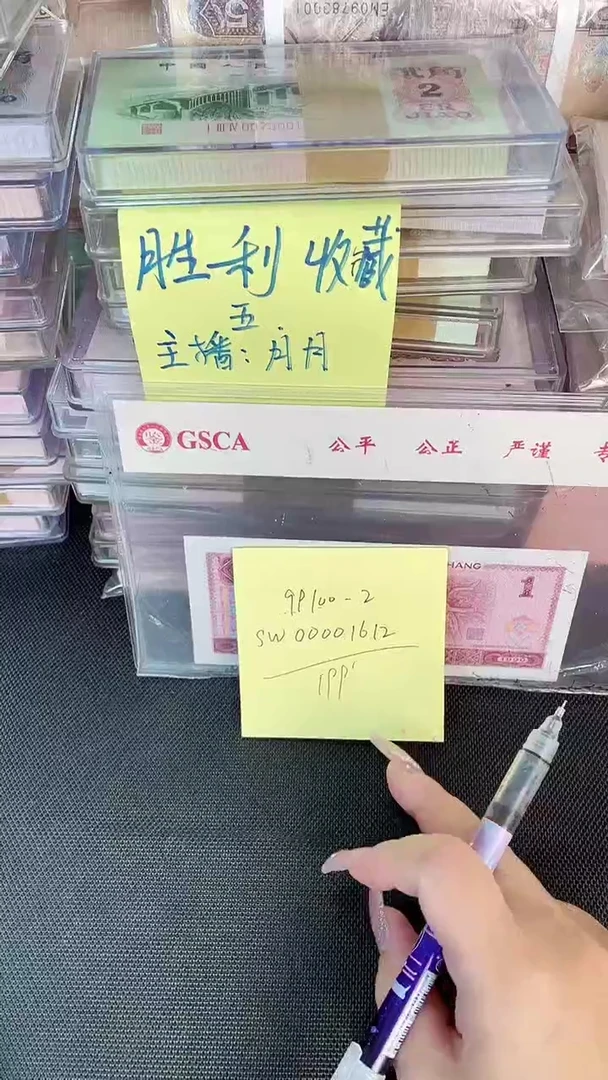 EM09789001
中国人民
贰角
2
ER
JIAO
胜利 收藏
五
主播：月月
GSCA 公平 公正 严谨 专
HANG
1
9P100-2
SW00001612
199'
1990